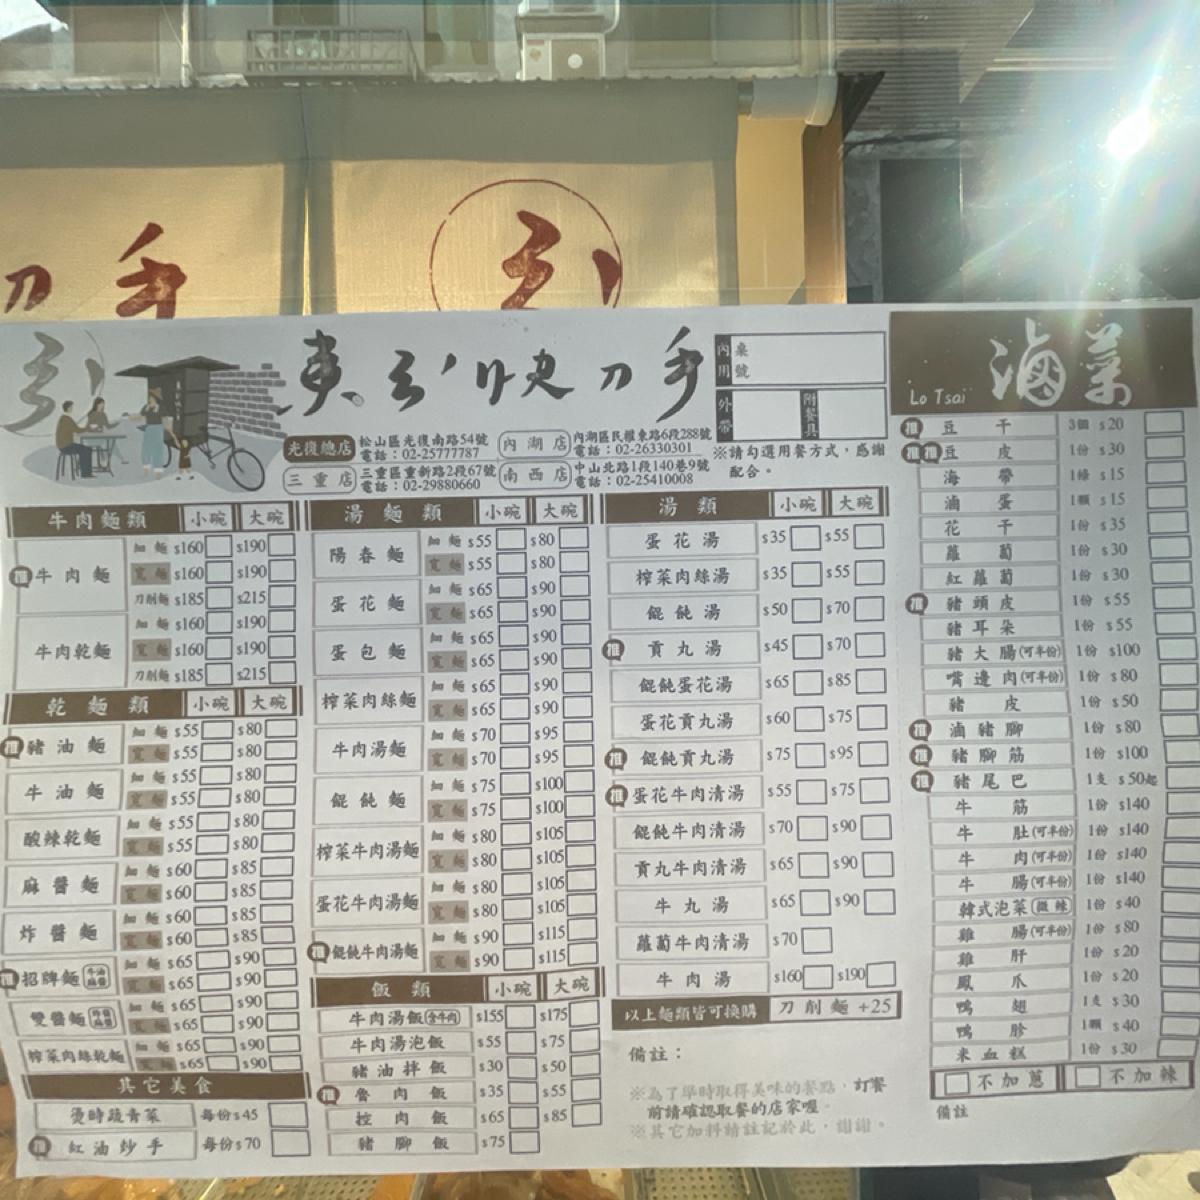 刀手
引
東引快刀手
內用 桌號
外帶 附餐具
※請勾選用餐方式，感謝配合。
光復總店 松山區光復南路54號 電話：02-25777787
內湖店 內湖區民權東路6段288號 電話：02-26330301
三重店 三重區重新路2段67號 電話：02-29880660
南西店 中山北路1段140巷9號 電話：02-25410008
牛肉麵類 小碗 大碗
推 牛肉麵 細麵 $160 $190
寬麵 $160 $190
刀削麵 $185 $215
牛肉乾麵 細麵 $160 $190
寬麵 $160 $190
刀削麵 $185 $215
乾麵類 小碗 大碗
推 豬油麵 細麵 $55 $80
寬麵 $55 $80
牛油麵 細麵 $55 $80
寬麵 $55 $80
酸辣乾麵 細麵 $55 $80
寬麵 $55 $80
麻醬麵 細麵 $60 $85
寬麵 $60 $85
炸醬麵 細麵 $60 $85
寬麵 $60 $85
推 招牌麵 牛油麻醬 細麵 $65 $90
寬麵 $65 $90
雙醬麵 炸醬麻醬 細麵 $65 $90
寬麵 $65 $90
榨菜肉絲乾麵 細麵 $65 $90
寬麵 $65 $90
其它美食
燙時蔬青菜 每份$45
推 紅油炒手 每份$70
湯麵類 小碗 大碗
陽春麵 細麵 $55 $80
寬麵 $55 $80
蛋花麵 細麵 $65 $90
寬麵 $65 $90
蛋包麵 細麵 $65 $90
寬麵 $65 $90
榨菜肉絲麵 細麵 $65 $90
寬麵 $65 $90
牛肉湯麵 細麵 $70 $95
寬麵 $70 $95
餛飩麵 細麵 $75 $100
寬麵 $75 $100
榨菜牛肉湯麵 細麵 $80 $105
寬麵 $80 $105
蛋花牛肉湯麵 細麵 $80 $105
寬麵 $80 $105
推 餛飩牛肉湯麵 細麵 $90 $115
寬麵 $90 $115
飯類 小碗 大碗
牛肉湯飯(含牛肉) $155 $175
牛肉湯泡飯 $55 $75
豬油拌飯 $30 $50
推 魯肉飯 $35 $55
控肉飯 $65 $85
豬腳飯 $75
湯類 小碗 大碗
蛋花湯 $35 $55
榨菜肉絲湯 $35 $55
餛飩湯 $50 $70
推 貢丸湯 $45 $70
餛飩蛋花湯 $65 $85
蛋花貢丸湯 $60 $75
推 餛飩貢丸湯 $75 $95
推 蛋花牛肉清湯 $55 $75
餛飩牛肉清湯 $70 $90
貢丸牛肉清湯 $65 $90
牛丸湯 $65 $90
蘿蔔牛肉清湯 $70
牛肉湯 $160 $190
以上麵類皆可換購 刀削麵 +25
備註：
※為了準時取得美味的餐點，訂餐
前請確認取餐的店家喔。
※其它加料請註記於此，謝謝。
滷菜
Lo Tsai
推 豆干 3個 $20
推推 豆皮 1份 $30
海帶 1條 $15
滷蛋 1顆 $15
花干 1份 $35
蘿蔔 1份 $30
紅蘿蔔 1份 $30
推 豬頭皮 1份 $55
豬耳朵 1份 $55
豬大腸(可半份) 1份 $100
嘴邊肉(可半份) 1份 $80
豬皮 1份 $50
推 滷豬腳 1份 $80
推 豬腳筋 1份 $100
推 豬尾巴 1支 $50起
牛筋 1份 $140
牛肚(可半份) 1份 $140
牛肉(可半份) 1份 $140
牛腸(可半份) 1份 $140
韓式泡菜(微辣) 1份 $40
雞腸(可半份) 1份 $80
雞肝 1份 $20
鳳爪 1份 $20
鴨翅 1支 $30
鴨胗 1顆 $40
米血糕 1份 $30
不加蔥 不加辣
備註